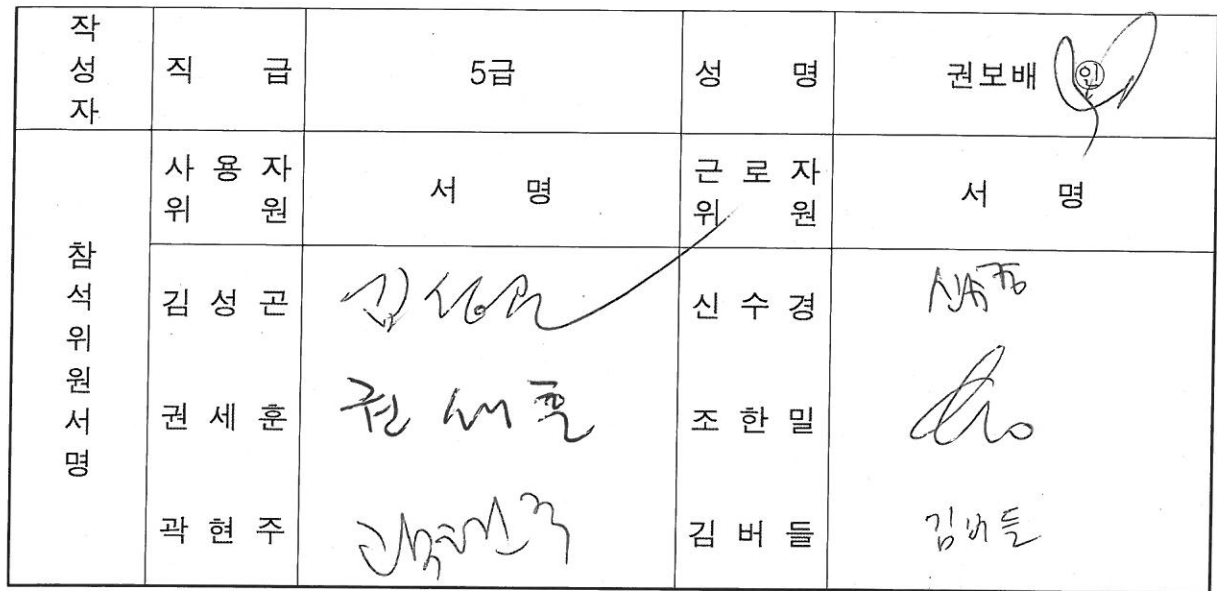 작성자 직 급 5급 성 명 권보배 인
참석위원서명
사 용 자 위 원 서 명 근 로 자 위 원 서 명
김 성 곤 김성곤 신 수 경 신수경
권 세 훈 권세훈 조 한 밀
곽 현 주 곽현주 김 버 들 김버들